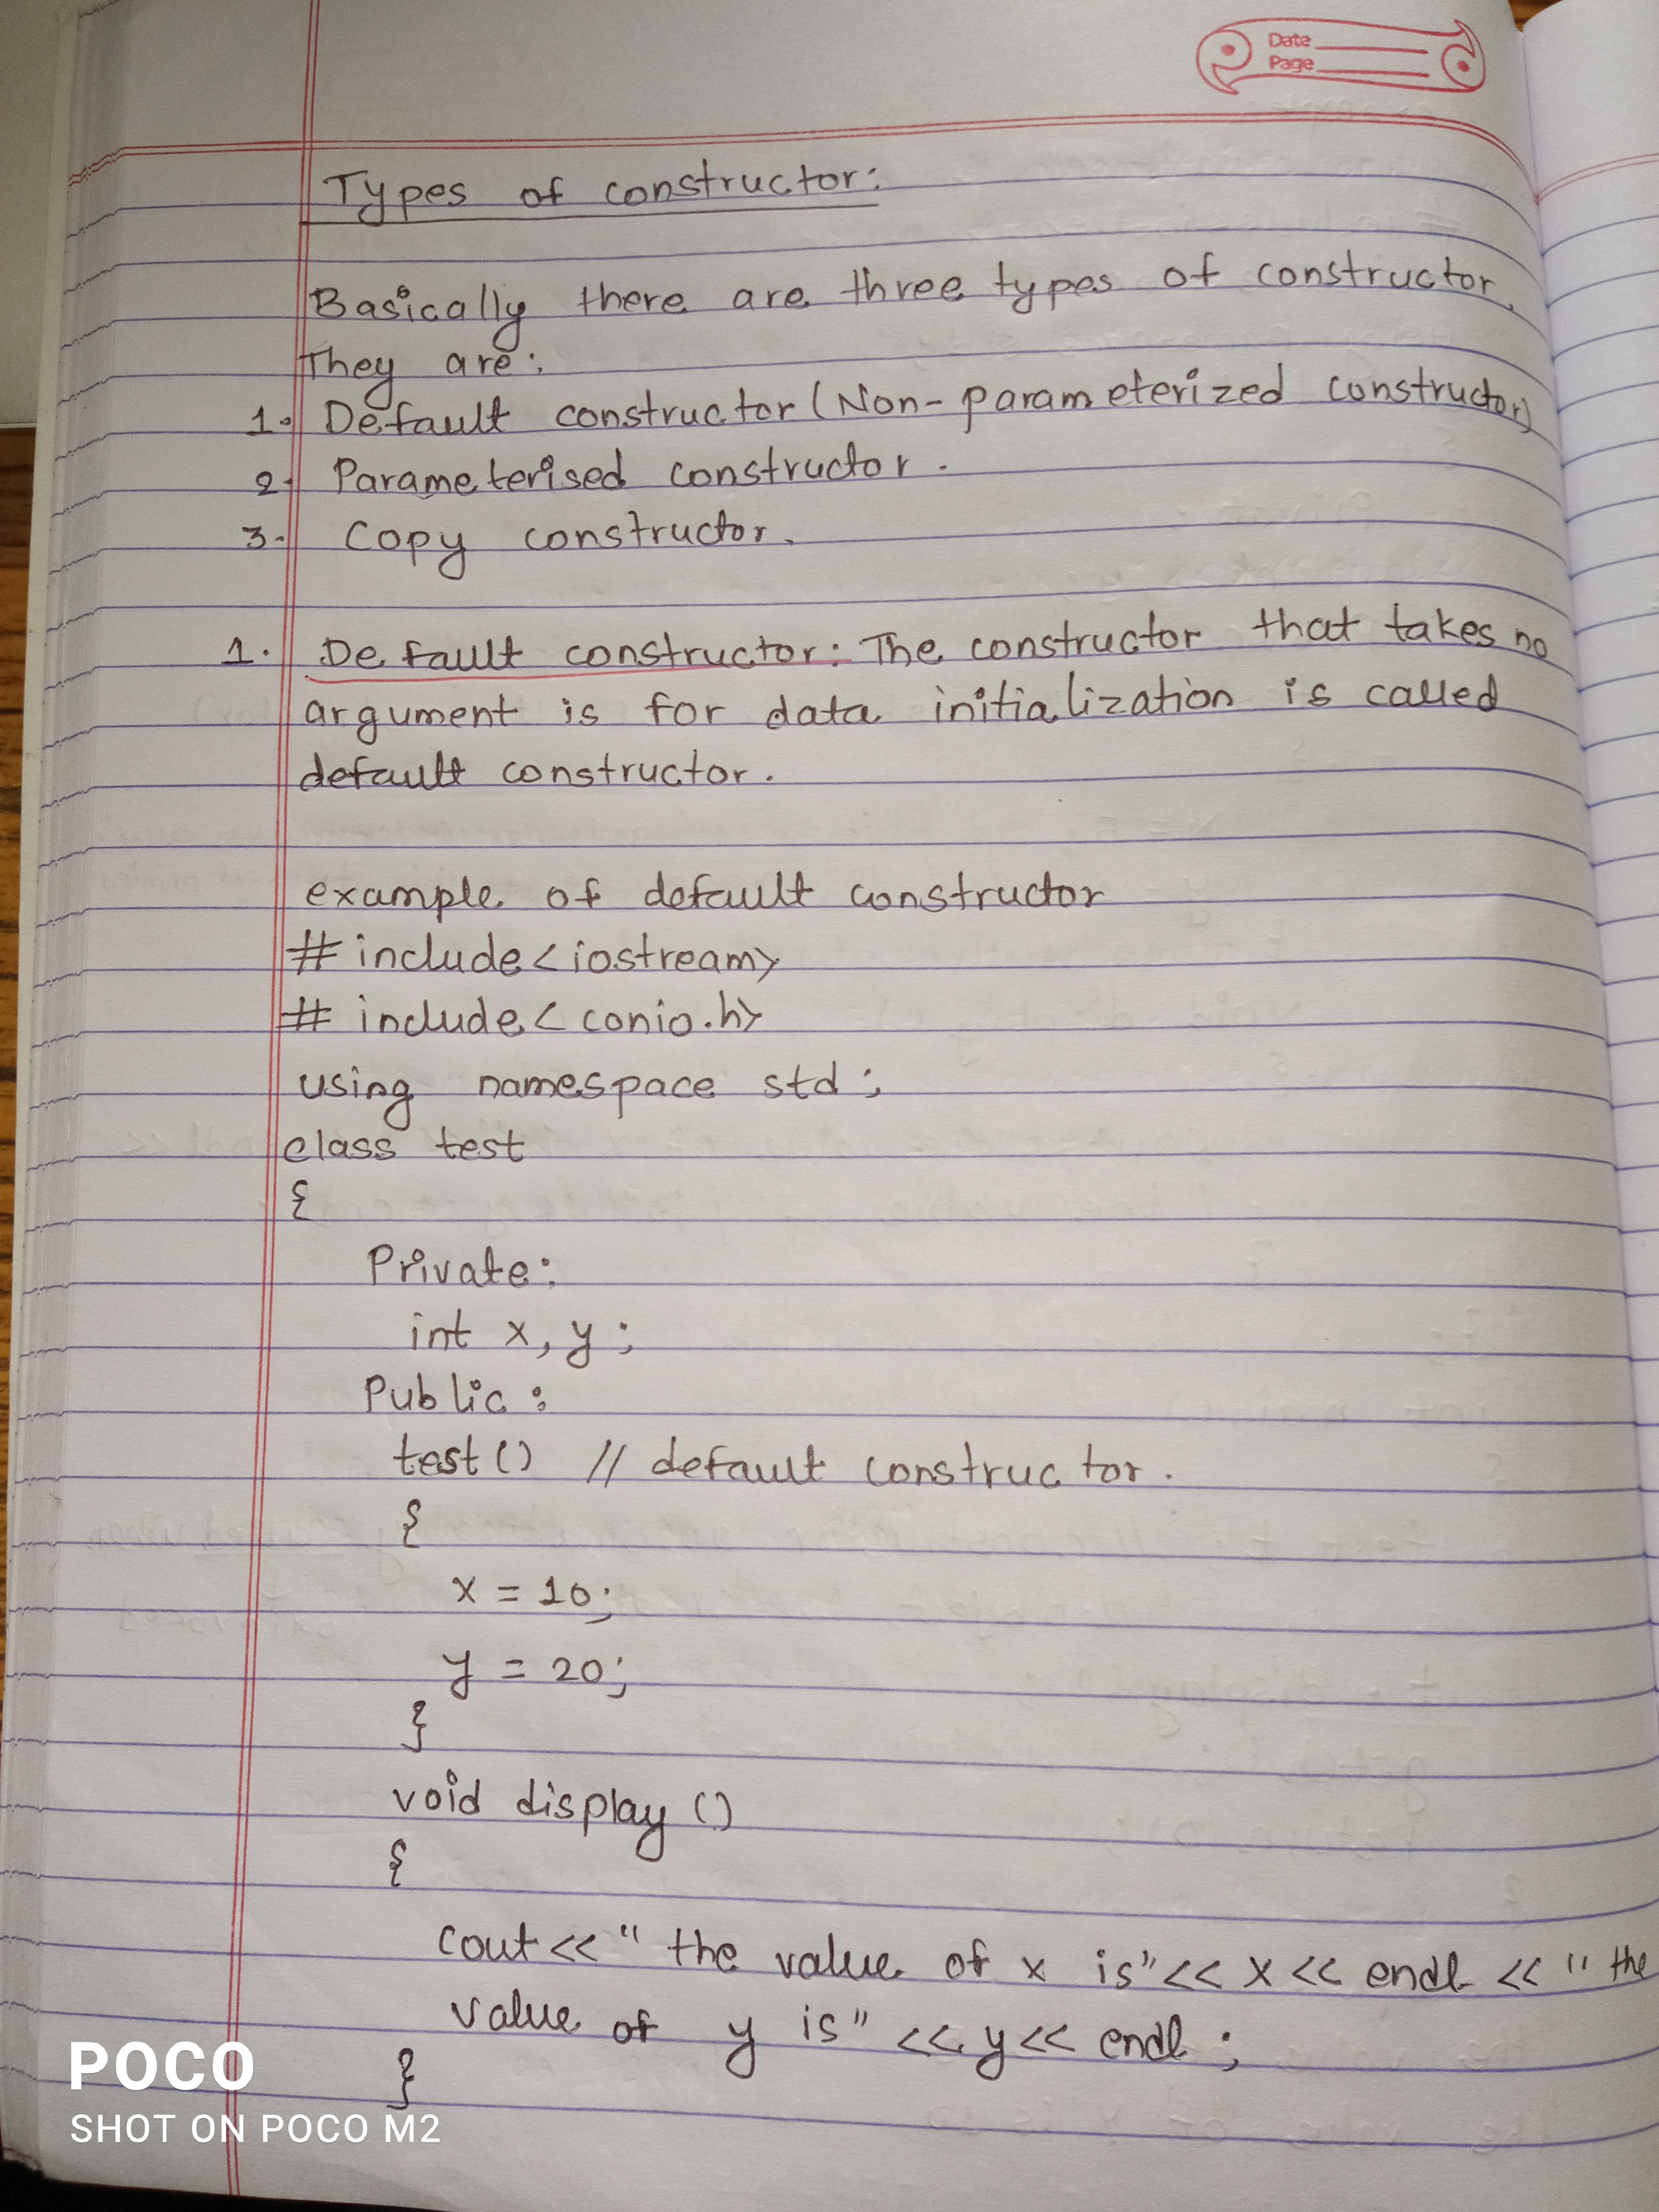 Date
Page
Types of constructor:
Basically there are three types of constructor.
They are:
1. Default constructor (Non-parameterized constructor)
2. Parameterised constructor.
3. Copy constructor.
1. Default constructor: The constructor that takes no
argument is for data initialization is called
default constructor.
example of default constructor
# include<iostream>
# include< conio.h>
using namespace std;
class test
{
Private:
int x, y;
Public:
test() // default constructor.
{
x = 10;
y = 20;
}
void display ()
{
cout<<" the value of x is"<< x << endl << " the
value of y is" << y << endl ;
}
POCO
SHOT ON POCO M2